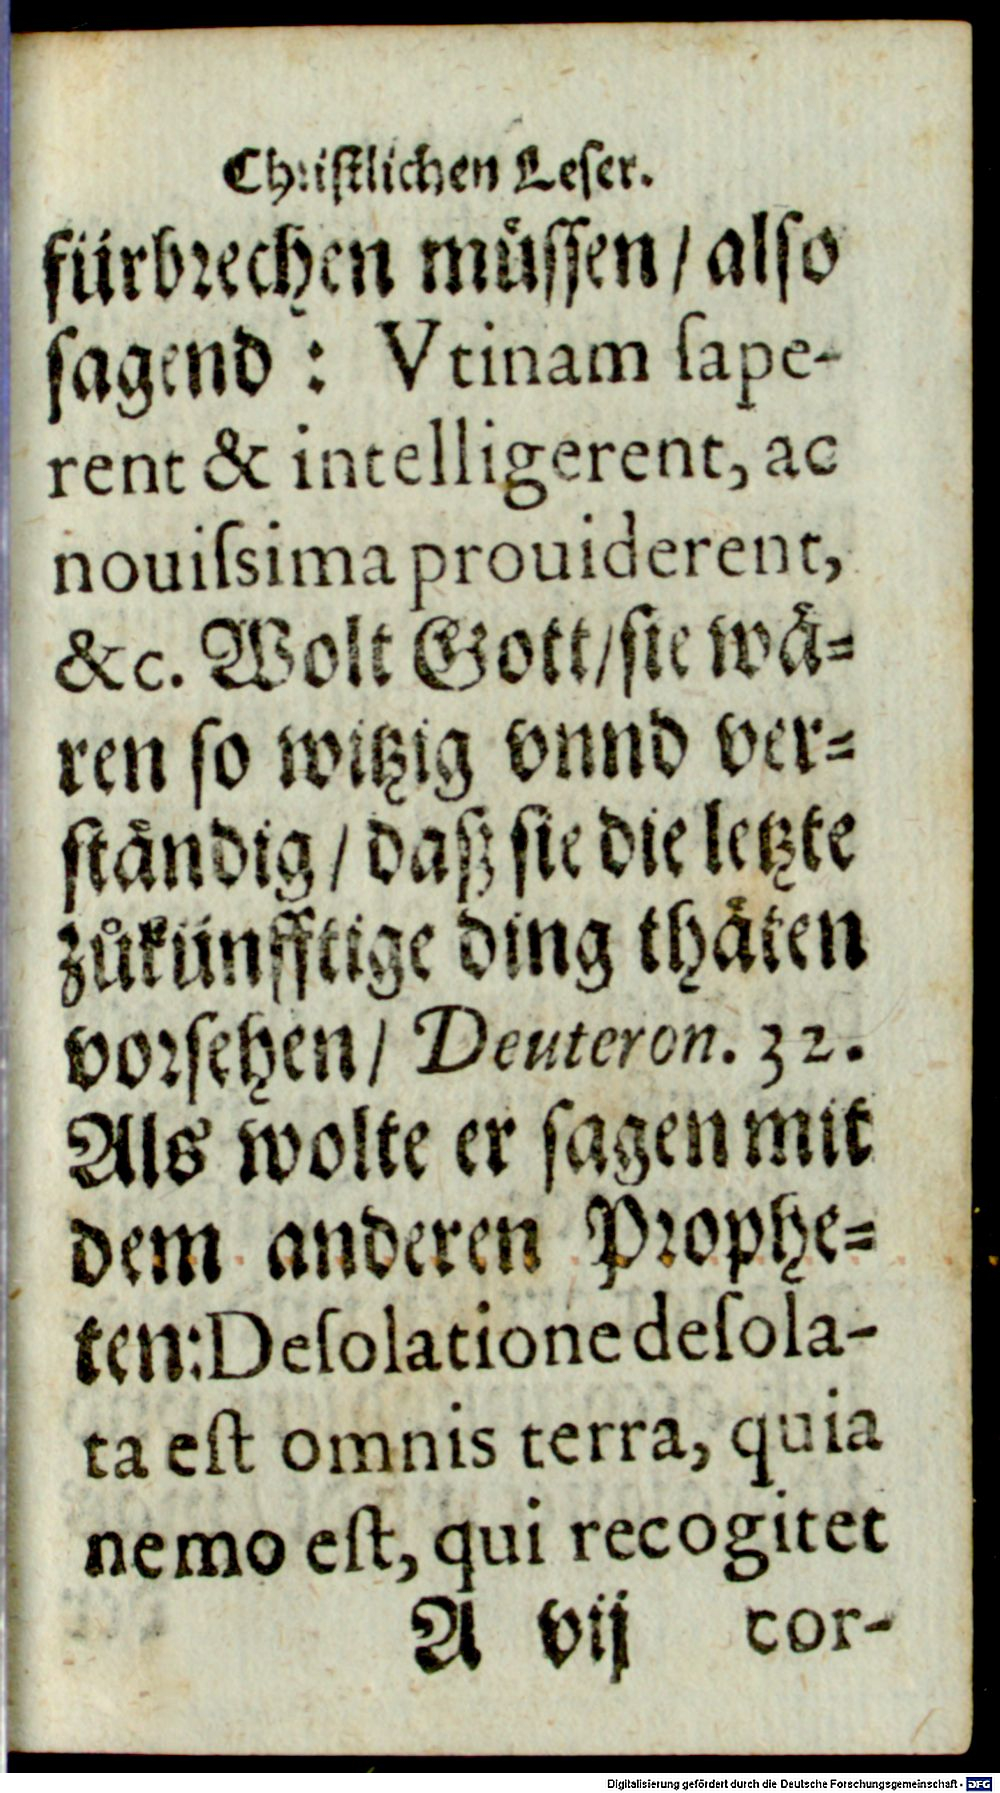 Chriſtlichen Leſer.
fürbrechen müſſen / alſo
ſagend : Vtinam ſape-
rent & intelligerent, ac
nouiſsima prouiderent,
&c. Wolt Gott / ſie wå-
ren ſo witzig vnnd ver-
ſtåndig / daſz ſie die letzte
zůkünfftige ding thåten
vorſehen / Deuteron. 32.
Als wolte er ſagen mit
dem anderen Prophe-
ten: Deſolatione deſola-
ta eſt omnis terra, quia
nemo eſt, qui recogitet
A vij cor-
Digitalisierung gefördert durch die Deutsche Forschungsgemeinschaft - DFG